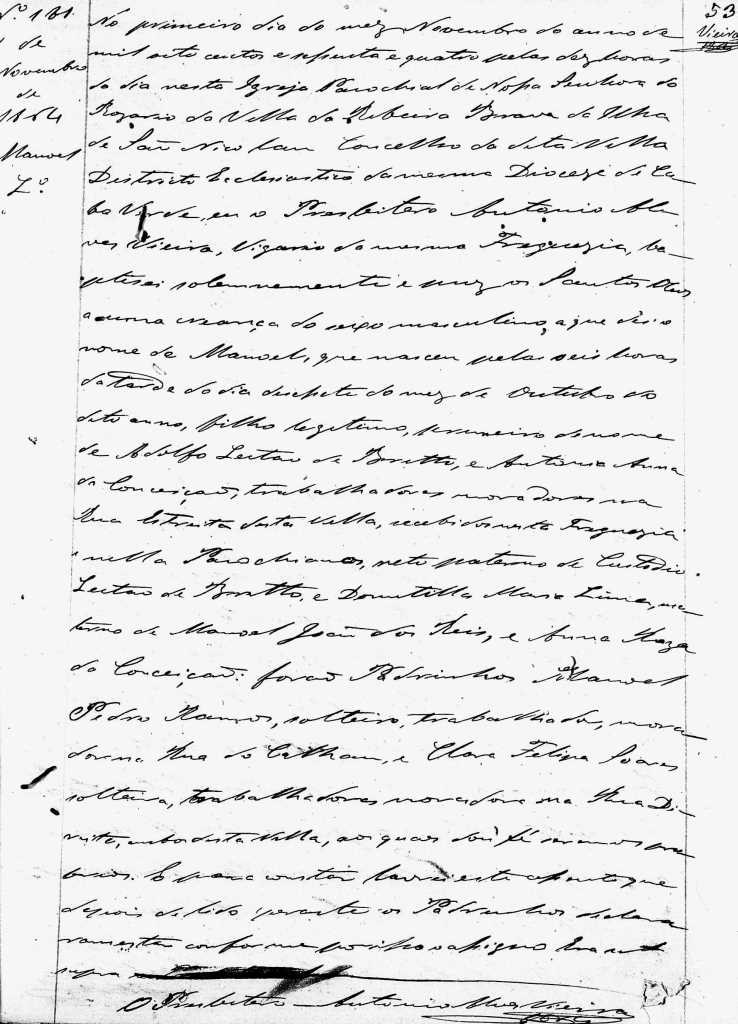 Nº 181
1 de
Novembro
de
Manoel
Lº
53
Vieira
No primeiro dia do mez Novembro do anno de
mil oito centos e setenta e quatro pelas dez horas
do dia nesta Igreja Parochial de Nossa Senhora do
Rozario da Villa da Ribeira Brava da Ilha
de São Nicolau Concelho da dita Villa
Districto Ecclesiastico da mesma Dioceze de Ca-
bo Verde, eu o Presbitero Antonio Al-
ves Vieira, Vigario da mesma Freguezia, ba-
ptisei solemnemente e puz os Santos Oleos
a uma creança do sexo masculino, a que dei o
nome de Manoel, que nasceu pelas seis horas
da tarde do dia desesete do mez de Outubro do
dito anno, filho legitimo, primeiro do nome
de Adolfo Leitao de Britto, e Antonia Anna
da Conceição, trabalhadores moradores na
Rua Estreita desta Villa, recebidos nesta Freguezia
e nella Parochianos, neto paterno de Custodio
Leitao de Britto, e Domitilla Maria Lima, ma-
terno de Manoel João dos Reis, e Anna Roza
da Conceição: forão Padrinhos Manoel
Pedro Ramos, solteiro, trabalhador, mora-
dor na Rua do Calhau, e Clara Felipa Soares
solteira, trabalhadora moradora na Rua Di-
reita, ambos desta Villa, aos quaes dou fé serem os pro-
prios. E para constar lavrei este assento que
depois de lido perante os Padrinhos declara
ram estar conforme por isso o assigno Era ut
supra
O Presbitero Antonio Alves Vieira